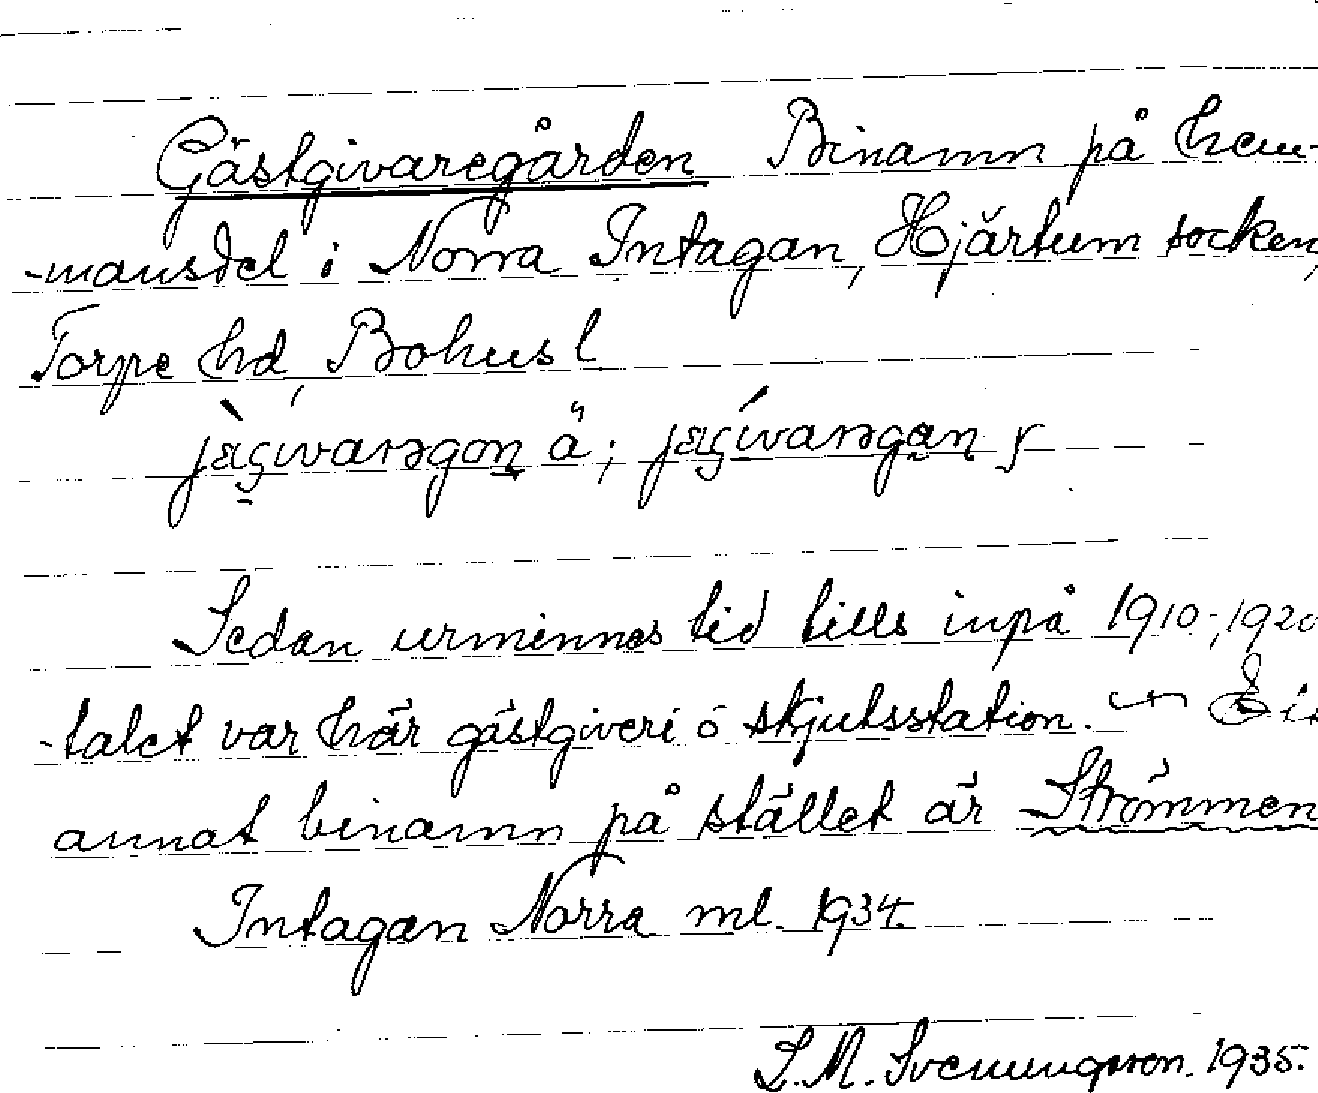 Gästgivaregården Binamn på hem-
-mansdel i Norra Intagan, Hjärtum socken,
Torpe hd, Bohusl
ä; y
Sedan urminnes tid tills inpå 1910-, 1920
-talet var här gästgiveri o skjutsstation. — Ett
annat binamn på stället är Strömmen
Intagan Norra ml. 1934.
S. M. Svenungsson. 1935.